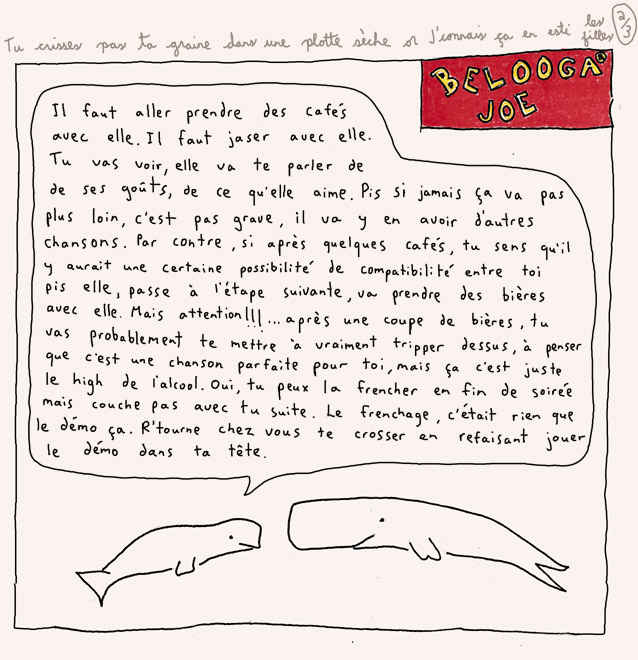 Tu crisses pas ta graine dans une plotte sèche or j'connais ça en esti les filles 2/3
BELOOGA
JOE
Il faut aller prendre des cafés
avec elle. Il faut jaser avec elle.
Tu vas voir, elle va te parler de
de ses goûts, de ce qu'elle aime. Pis si jamais ça va pas
plus loin, c'est pas grave, il va y en avoir d'autres
chansons. Par contre, si après quelques cafés, tu sens qu'il
y aurait une certaine possibilité de compatibilité entre toi
pis elle, passe à l'étape suivante, va prendre des bières
avec elle. Mais attention!!!...après une coupe de bières, tu
vas probablement te mettre à vraiment tripper dessus, à penser
que c'est une chanson parfaite pour toi, mais ça c'est juste
le high de l'alcool. Oui, tu peux la frencher en fin de soirée
mais couche pas avec tu suite. Le frenchage, c'était rien que
le démo ça. R'tourne chez vous te crosser en refaisant jouer
le démo dans ta tête.